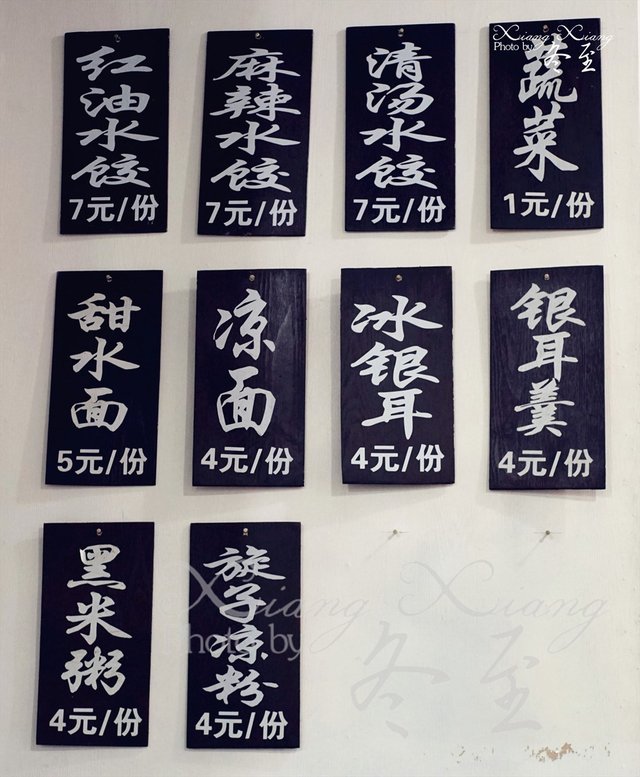 红油水饺
7元/份
麻辣水饺
7元/份
清汤水饺
7元/份
Xiang Xiang
Photo by 冬至
蔬菜
1元/份
甜水面
5元/份
凉面
4元/份
冰银耳
4元/份
银耳羹
4元/份
黑米粥
4元/份
旋子凉粉
4元/份
Xiang Xiang
Photo by
冬至